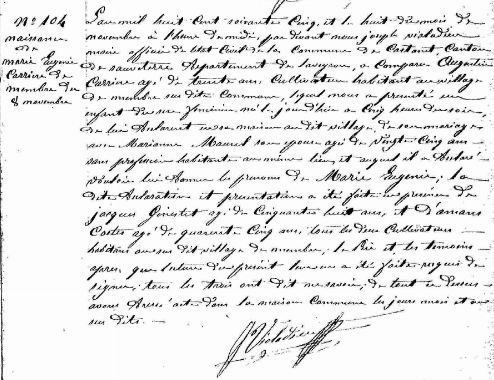 No 104
naissance
de
marie Eugenie
Carrière de
membre du
8 novembre
L'an mil huit Cent soixante Cinq, et le huit du mois de
novembre à l'heure de midi, par devant nous joseph vialadieu
maire officier de l'état Civil de la Commune de Castanet Canton
de sauveterre Département de laveyron, a Comparu Quentin
Carrière agé de trente ans, Cultivateur habitant au village
de membre sur dite Commune, lequel nous a presenté un
enfant du sexe féminin né le jourd'hui a Cinq heures du soir,
de lui déclarant en sa maison au dit village, de son mariage
avec Marianne Maurel son epouse agé de Vingt Cinq ans
sans profession habitante au même lieu, et auquel il a déclaré
vouloir lui donner le prenoms de Marie Eugenie; la
dite declaration et presentation a été faite en presence de
jacques Ginestet agé de Cinquante huit ans, et D'amans
Costes agé de quarente Cinq ans, tous les deux Cultivateurs
habitans au sus dit village de membre; le Père et les temoins
après que lecture du present leur en a été faite requis de
signer, tous les trois ont dit ne savoir; de tout ce dessus
avons dressé acte dans la maison Commune les jours mois et an
sus dits. —
Vialadieu